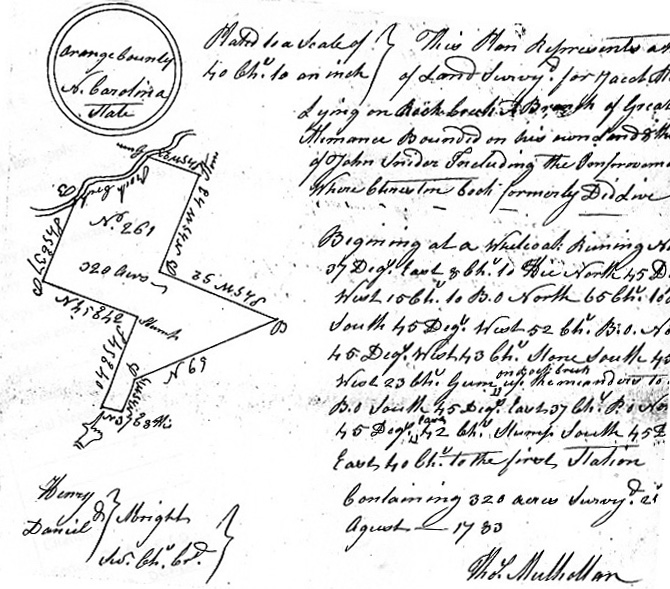 Orange County
N. Carolina
State
Plated to a Scale of
40 Chs. to an inch
This Plan Represents a
of Land Survyd. for Jacob
Lying on Rock Creek A Branch of Great
Alimance Bounded on his own Land & th
of John Snider Including the Improvem
Where Christen Cook formerly Did Live
Begining at a Whiteoak Runing N
37 Degs. East 8 Chs. to Hic North 45 D
West 15 Chs. to B.O North 65 Chs. to
South 45 Degs. West 52 Chs. B.O. No
45 Degs. West 43 Chs. Stone South 4
West 23 Chs. Gum on Rock Creek up the meanders to
B.O South 45 Degs. East 37 Chs. B.O No
45 Degs. East 42 Chs. Stump South 45 D
East 40 Chs. to the first Station
Containing 320 acres Survyd. 21
Agust 1783
Thos. Mulhollan
No. 261
320 Acres
Rock Creek
Gum
B.O
Stump
N 69
Henry
&
Daniel
Albright
Sw. Chs. Crs.